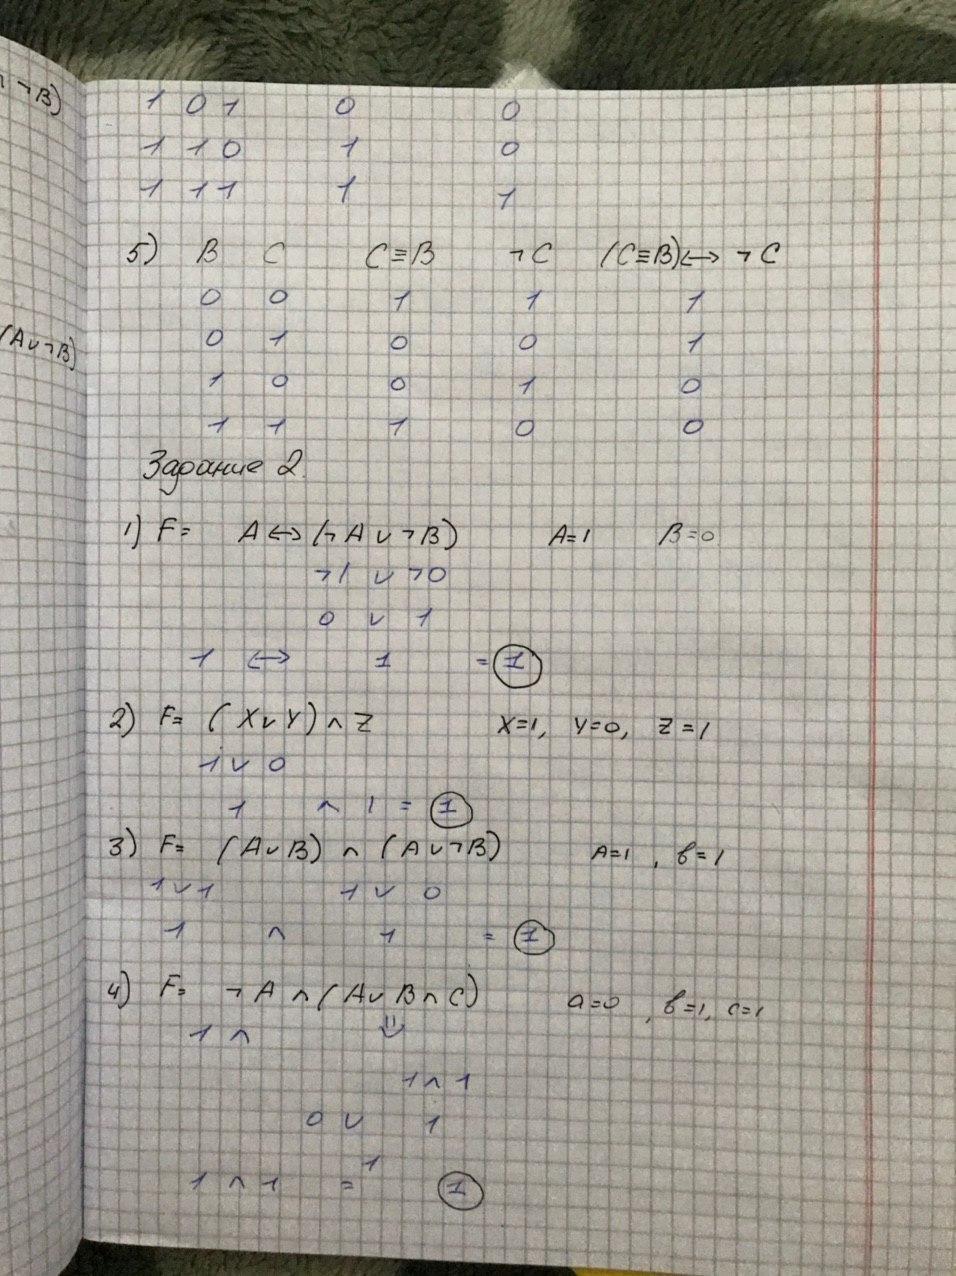 ¬B)
1 0 1 0 0
1 1 0 1 0
1 1 1 1 1
5) B C C≡B ¬C (C≡B)↔ ¬C
0 0 1 1 1
(A∨¬B)
0 1 0 0 1
1 0 0 1 0
1 1 1 0 0
Задание 2.
1) F= A↔(¬A∨¬B) A=1 B=0
¬1 ∨ ¬0
0 ∨ 1
1 ↔ 1 = 1
2) F= (X∨Y)∧Z X=1, Y=0, Z=1
1∨0
1 ∧ 1 = 1
3) F= (A∨B) ∧ (A∨¬B) A=1, в=1
1∨1 1∨0
1 ∧ 1 = 1
4) F= ¬A∧(A∨B∧C) a=0, в=1, c=1
1 ∧ ⇓
1∧1
0 ∨ 1
1
1∧1 = 1